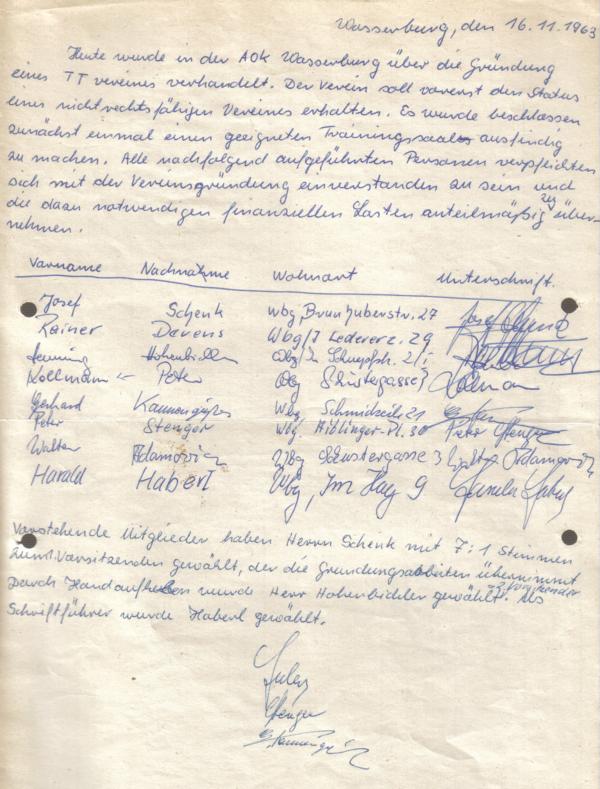 Wasserburg, den 16.11.1963
Heute wurde in der AOK Wasserburg über die Gründung
eines TT vereines verhandelt. Der Verein soll vorerst den Status
eines nichtrechtsfähigen Vereines erhalten. Es wurde beschlossen
zunächst einmal einen geeigneten Trainingssaal ausfindig
zu machen. Alle nachfolgend aufgeführten Personen verpflichten
sich mit der Vereinsgründung einverstanden zu sein und
die dazu notwendigen finanziellen Lasten anteilmäßig zu über-
nehmen.
Vorname Nachnahme Wohnort Unterschrift.
Josef Schenk Wbg, Brunhuberstr. 27
Rainer Devens Wbg/J Ledererz. 29
Henning Hohenbichler Wbg/Jn
Kollmann Peter Wbg Schustergasse 3
Gerhard Wbg Schmidzeile 21
Peter Stenger Wbg. Aiblinger-Pl. 30 Peter Stenger
Walter Adamovic Wbg Schustergasse 3 Walter Adamovic
Harald Haberl Wbg, Im Hag 9
Vorstehende Mitglieder haben Herrn Schenk mit 7:1 Stimmen
zum 1. Vorsitzenden gewählt, der die Gründungsarbeiten übernimmt
Durch Handaufheben wurde Herr Hohenbichler 2. Vorsitzender gewählt. Als
Schriftführer wurde Haberl gewählt.
Stenger